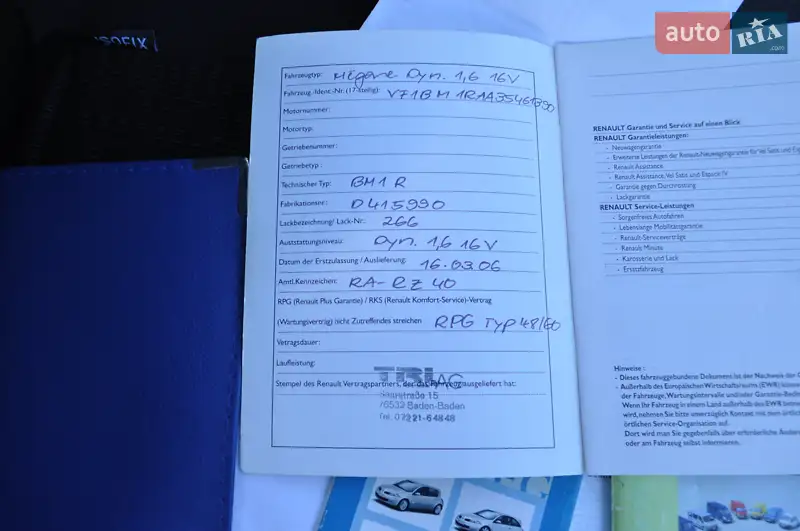 ISOFIX
auto RIA
Fahrzeugtyp: Mégane Dyn. 1,6 16V
Fahrzeug.-Ident.-Nr. (17-stellig):
Motornummer:
Motortyp:
Getriebenummer:
Getriebetyp:
Technischer Typ: BM1R
Fabrikationsnr.: D415990
Lackbezeichnung/ Lack-Nr.: 266
Ausstattungsniveau: Dyn. 1,6 16V
Datum der Erstzulassung / Auslieferung: 16.03.06
Amtl. Kennzeichen: RA-RZ 40
RPG (Renault Plus Garantie) / RKS (Renault Komfort-Service)-Vertrag
(Wartungsvertrag) nicht Zutreffendes streichen RPG Typ 48/60
Vetragsdauer:
Laufleistung:
Stempel des Renault Vertragspartners, der das Fahrzeug ausgeliefert hat:
76532 Baden-Baden
Tel. 07221-64848
RENAULT Garantie und Service auf einen Blick
RENAULT Garantieleistungen:
- Neuwagengarantie
- Erweiterte Leistungen der Renault-Neuwagengarantie für Vel Satis und
- Renault Assistance
- Renault Assistance, Vel Satis und Espace IV
- Garantie gegen Durchrostung
- Lackgarantie
RENAULT Service-Leistungen
- Sorgenfreies Autofahren
- Lebenslange Mobilitätsgarantie
- Renault-Serviceverträge
- Renault Minute
- Karosserie und Lack
- Ersatzfahrzeug
Hinweise :
• Dieses fahrzeuggebundene Dokument ist der Nachweis der
• Außerhalb des Europäischen Wirtschaftsraums (EWR) können
der Fahrzeuge, Wartungsintervalle und/oder Garantie-
Wenn Ihr Fahrzeug in einem Land außerhalb des EWR
wird, nehmen Sie bitte unverzüglich Kontakt mit dem
örtlichen Service-Organisation auf.
Dort wird man Sie gegebenfalls über erforderliche
oder am Fahrzeug selbst informieren.